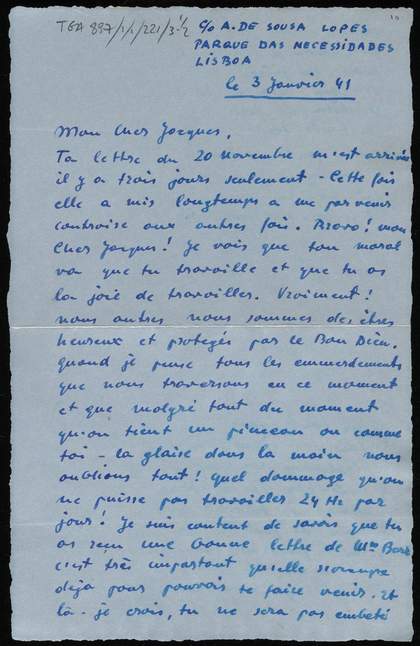 TGA 897/1/1/221/3 1/2
10
c/o A. DE SOUSA LOPES
PARQUE DAS NECESSIDADES
LISBOA
le 3 Janvier 41
Mon Cher Jacques,
Ta lettre du 20 novembre m'est arrivée
il y a trois jours seulement - Cette fois
elle a mis longtemps a me parvenir
contraire aux autres fois. Bravo! mon
Cher Jacques! Je vois que ton moral
va que tu travaille et que tu as
la joie de travailler. Vraiment!
nous autres nous sommes des êtres
heureux et protegés par le Bon Dieu.
quand je pense tous les emmerdements
que nous traversons en ce moment
et que malgré tout du moment
qu'on tient un pinceau ou comme
toi - la glaise dans la main nous
oublions tout! quel dommage qu'on
ne puisse pas travailler 24 He par
jour! Je suis content de savoir que tu
as reçu une bonne lettre de Mme
c'est très important qu'elle s'occupe
deja pour pouvoir te faire venir. et
là - je crois, tu ne sera pas embeté